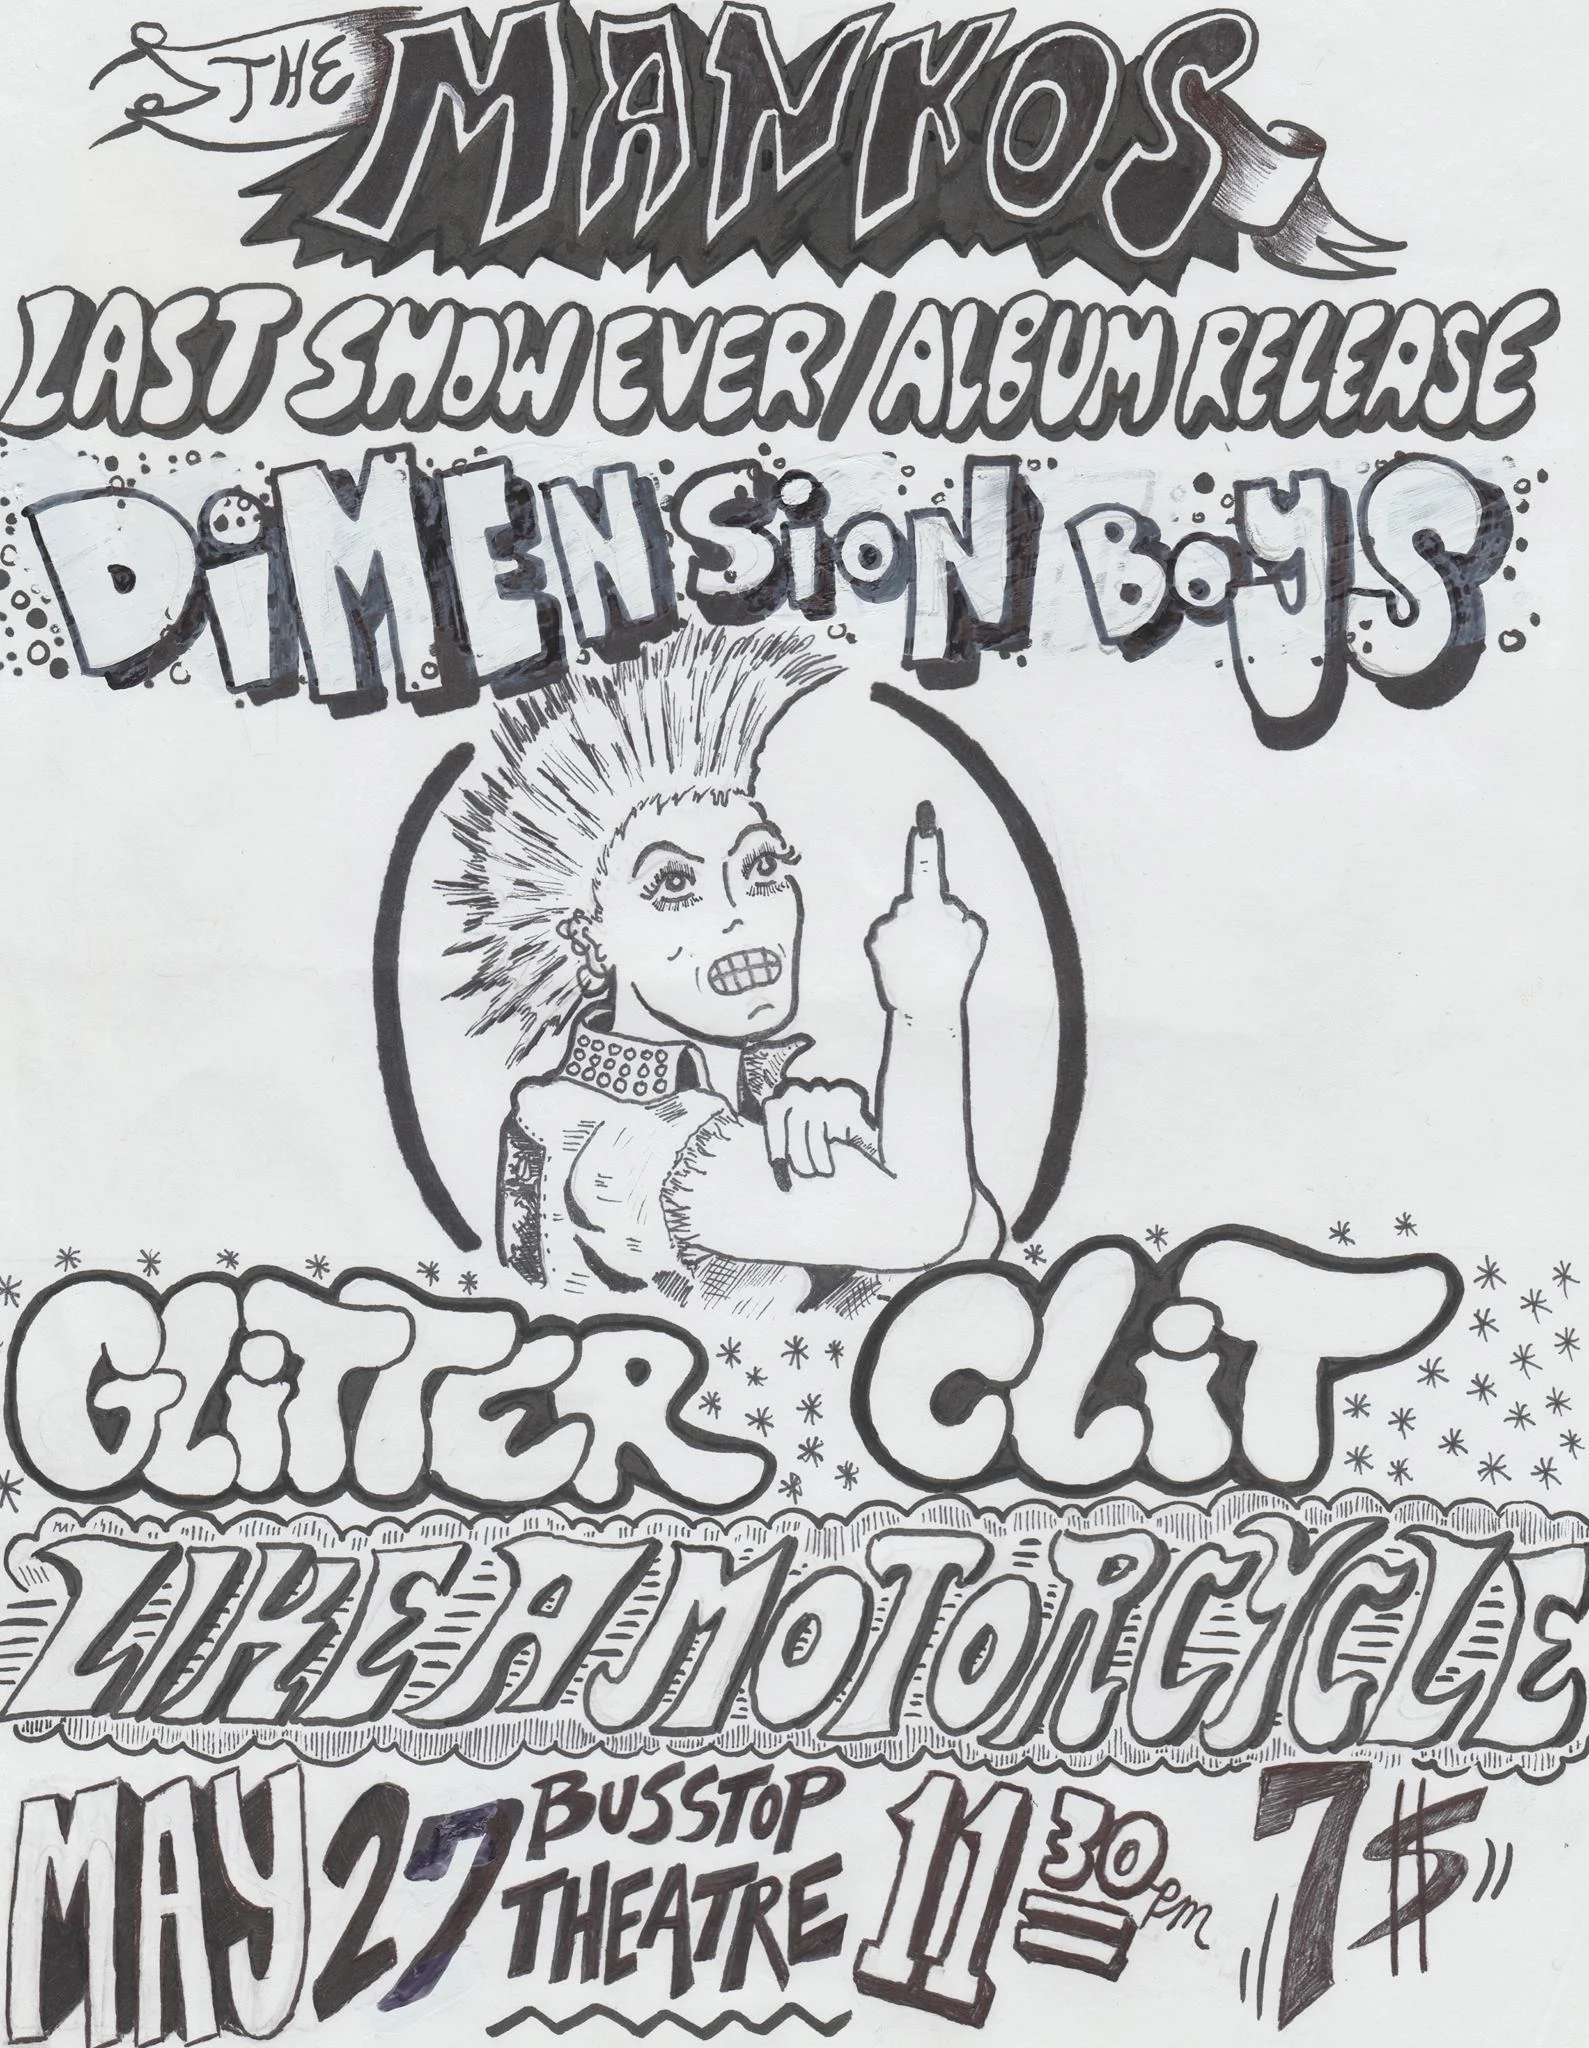 THE MANKOS
LAST SHOW EVER/ALBUM RELEASE
DiMENSiON BoYS
GLiTTER CLiT
LIKE A MOTORCYCLE
MAY 27 BUS STOP THEATRE 11 30 PM 7$